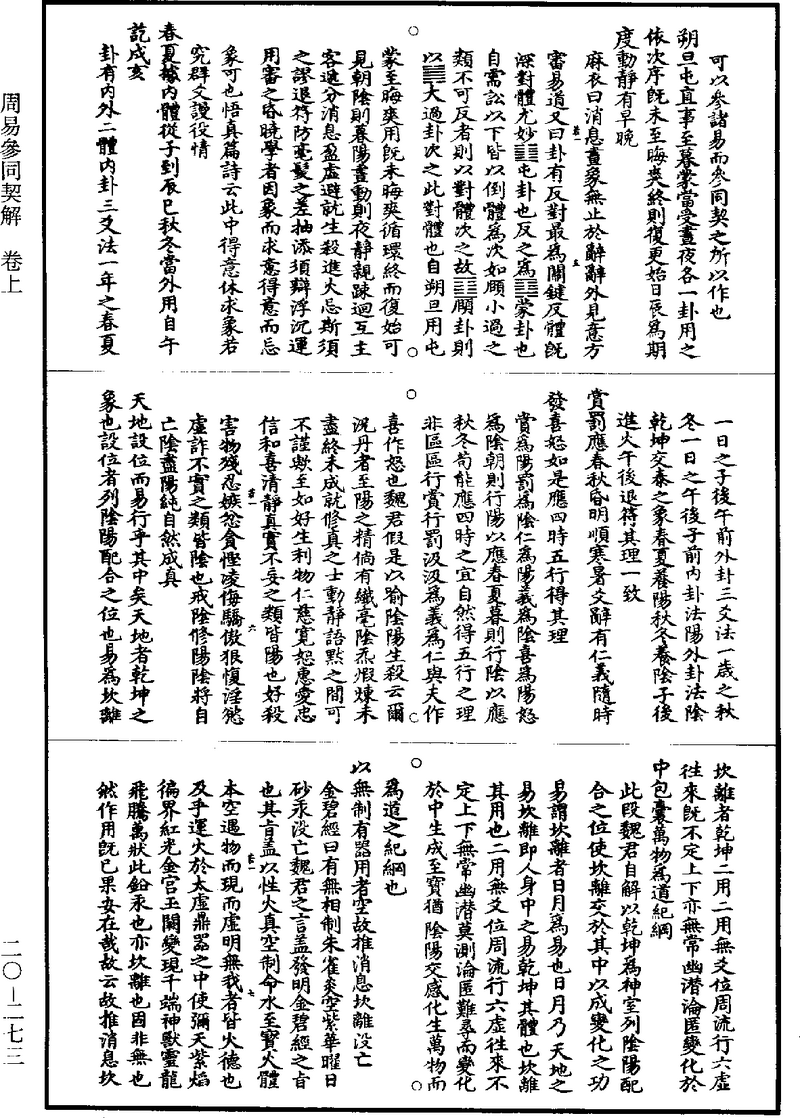 周易參同契解　卷上
可以參諸易而參同契之所以作也
朔旦屯直事至暮蒙當受晝夜各一卦用之
依次序既未至晦爽終則復更始日辰為期
度動靜有早晚
麻衣曰消息畫象無止於辭辭外見意方
審易道又曰卦有反對最為關鍵反體既
深對體尤妙䷂屯卦也反之為䷃蒙卦也
自需訟以下皆以倒體為次如頤小過之
類不可反者則以對體次之故䷚頤卦則
以䷛大過卦次之此對體也自朔旦用屯
蒙至晦爽用既未晦爽循環終而復始可
見朝陰則暮陽晝動則夜靜親踈迴互主
客進分消息盈虛避就生殺進火忌斯須
之謬退符防毫髮之差抽添須辯浮沉運
用審之昏曉學者因象而求意得意而忘
象可也悟真篇詩云此中得意休求象若
究群爻謾役情
春夏據內體從子到辰巳秋冬當外用自午
訖戌亥
卦有內外二體內卦三爻法一年之春夏
一日之子後午前外卦三爻法一歲之秋
冬一日之午後子前內卦法陽外卦法陰
乾坤交泰之象春夏養陽秋冬養陰子後
進火午後退符其理一致
賞罰應春秋昏明順寒暑爻辭有仁義隨時
發喜怒如是應四時五行得其理
賞為陽罰為陰仁為陽義為陰喜為陽怒
為陰朝則行陽以應春夏暮則行陰以應
秋冬苟能應四時之宜自然得五行之理
非區區行賞行罰汲汲為義為仁與夫作
喜作怒也魏君假是以喻陰陽生殺云爾
況丹者至陽之精倘有纖毫陰炁煆煉未
盡終未成就修真之士動靜語默之間可
不謹歟至如好生利物仁慈寬恕惠愛忠
信和喜清靜真實不妄之類皆陽也好殺
害物殘忍嫉怨貪慳淩侮驕傲狠愎淫慾
虛詐不實之類皆陰也戒陰修陽陰將自
亡陰盡陽純自然成真
天地設位而易行乎其中矣天地者乾坤之
象也設位者列陰陽配合之位也易為坎離
坎離者乾坤二用二用無爻位周流行六虛
往來既不定上下亦無常幽潛淪匿變化於
中包囊萬物為道紀綱
此段魏君自解以乾坤為神室列陰陽配
合之位使坎離交於其中以成變化之功
易謂坎離者日月為易也日月乃天地之
易坎離即人身中之易乾坤其體也坎離
其用也二用無爻位周流行六虛往來不
定上下無常幽潜莫測淪匿難尋而變化
於中生成至寶猶陰陽交感化生萬物而
為道之紀綱也
以無制有器用者空故推消息坎離没亡
金碧經曰有無相制朱雀炎空紫華曜日
砂汞没亡魏君之言盖發明金碧經之旨
也其旨盖以性火真空制命水至寶火體
本空遇物而現而虛明無我者皆火德也
及乎運火於太虛鼎器之中使彌天紫焰
徧界紅光金宮玉闕變現千端神獸靈龍
飛騰萬狀此鉛汞也亦坎離也固非無也
然作用既已果安在哉故云故推消息坎
二〇—二七三